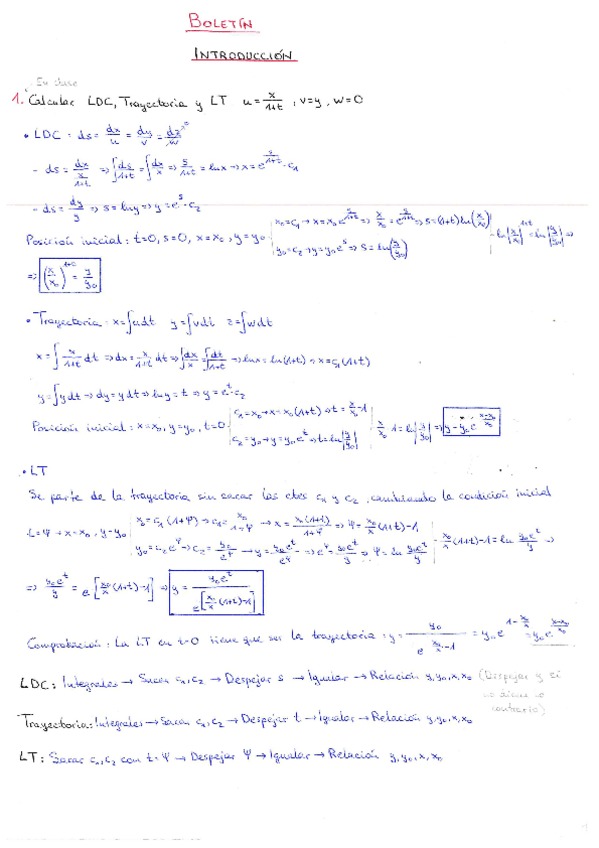 BOLETÍN
INTRODUCCIÓN
En clase
1. Calcular LDC, Trayectoria y LT u = x/(1+t), v=y, w=0
• LDC = ds = dx/u = dy/v = dz/w
- ds = dx/(x/(1+t)) ⇒ ∫ds/(1+t) = ∫dx/x ⇒ s/(1+t) = ln x ⇒ x = e^(s/(1+t)) · c₁
- ds = dy/y ⇒ s = ln y ⇒ y = e^s · c₂
Posición inicial: t=0, s=0, x=x₀, y=y₀
x₀=c₁ → x = x₀ e^(s/(1+t)) ⇒ x/x₀ = e^(s/(1+t)) ⇒ s = (1+t) ln(x/x₀)
y₀=c₂ → y = y₀ e^s ⇒ s = ln(y/y₀)
ln|x/x₀|^(1+t) = ln|y/y₀| ⇒
⇒ (x/x₀)^(1+t) = y/y₀
• Trayectoria: x=∫udt y=∫vdt z=∫wdt
x = ∫ x/(1+t) dt ⇒ dx = x/(1+t) dt ⇒ ∫dx/x = ∫dt/(1+t) ⇒ ln x = ln(1+t) ⇒ x = c₁(1+t)
y = ∫y dt ⇒ dy = y dt ⇒ ln y = t ⇒ y = e^t · c₂
Posición inicial: x=x₀, y=y₀, t=0
c₁ = x₀ → x = x₀(1+t) ⇒ t = x/x₀ - 1
c₂ = y₀ → y = y₀ e^t ⇒ t = ln|y/y₀|
x/x₀ - 1 = ln|y/y₀| ⇒ y = y₀ e^((x-x₀)/x₀)
• LT
Se parte de la trayectoria sin sacar las ctes c₁ y c₂, cambiando la condición inicial
t=Ψ → x=x₀, y=y₀
x₀ = c₁(1+Ψ) ⇒ c₁ = x₀/(1+Ψ) → x = x₀(1+t)/(1+Ψ) ⇒ Ψ = x₀/x (1+t) - 1
y₀ = c₂ e^Ψ → c₂ = y₀/e^Ψ → y = y₀e^t/e^Ψ → e^Ψ = y₀e^t/y ⇒ Ψ = ln y₀e^t/y
x₀/x (1+t) - 1 = ln y₀e^t/y ⇒
⇒ y₀e^t/y = e^[x₀/x (1+t) - 1] ⇒ y = y₀e^t / e^[x₀/x (1+t) - 1]
Comprobación: La LT en t=0 tiene que ser la trayectoria: y = y₀/e^(x₀/x - 1) = y₀ e^(1 - x₀/x) = y₀ e^((x-x₀)/x₀)
LDC: Integrales → Sacar c₁, c₂ → Despejar s → Igualar → Relación y, y₀, x, x₀ (Despejar y si
no dicen lo
contrario)
Trayectoria: Integrales → Sacar c₁, c₂ → Despejar t → Igualar → Relación y, y₀, x, x₀
LT: Sacar c₁, c₂ con t=Ψ → Despejar Ψ → Igualar → Relación y, y₀, x, x₀